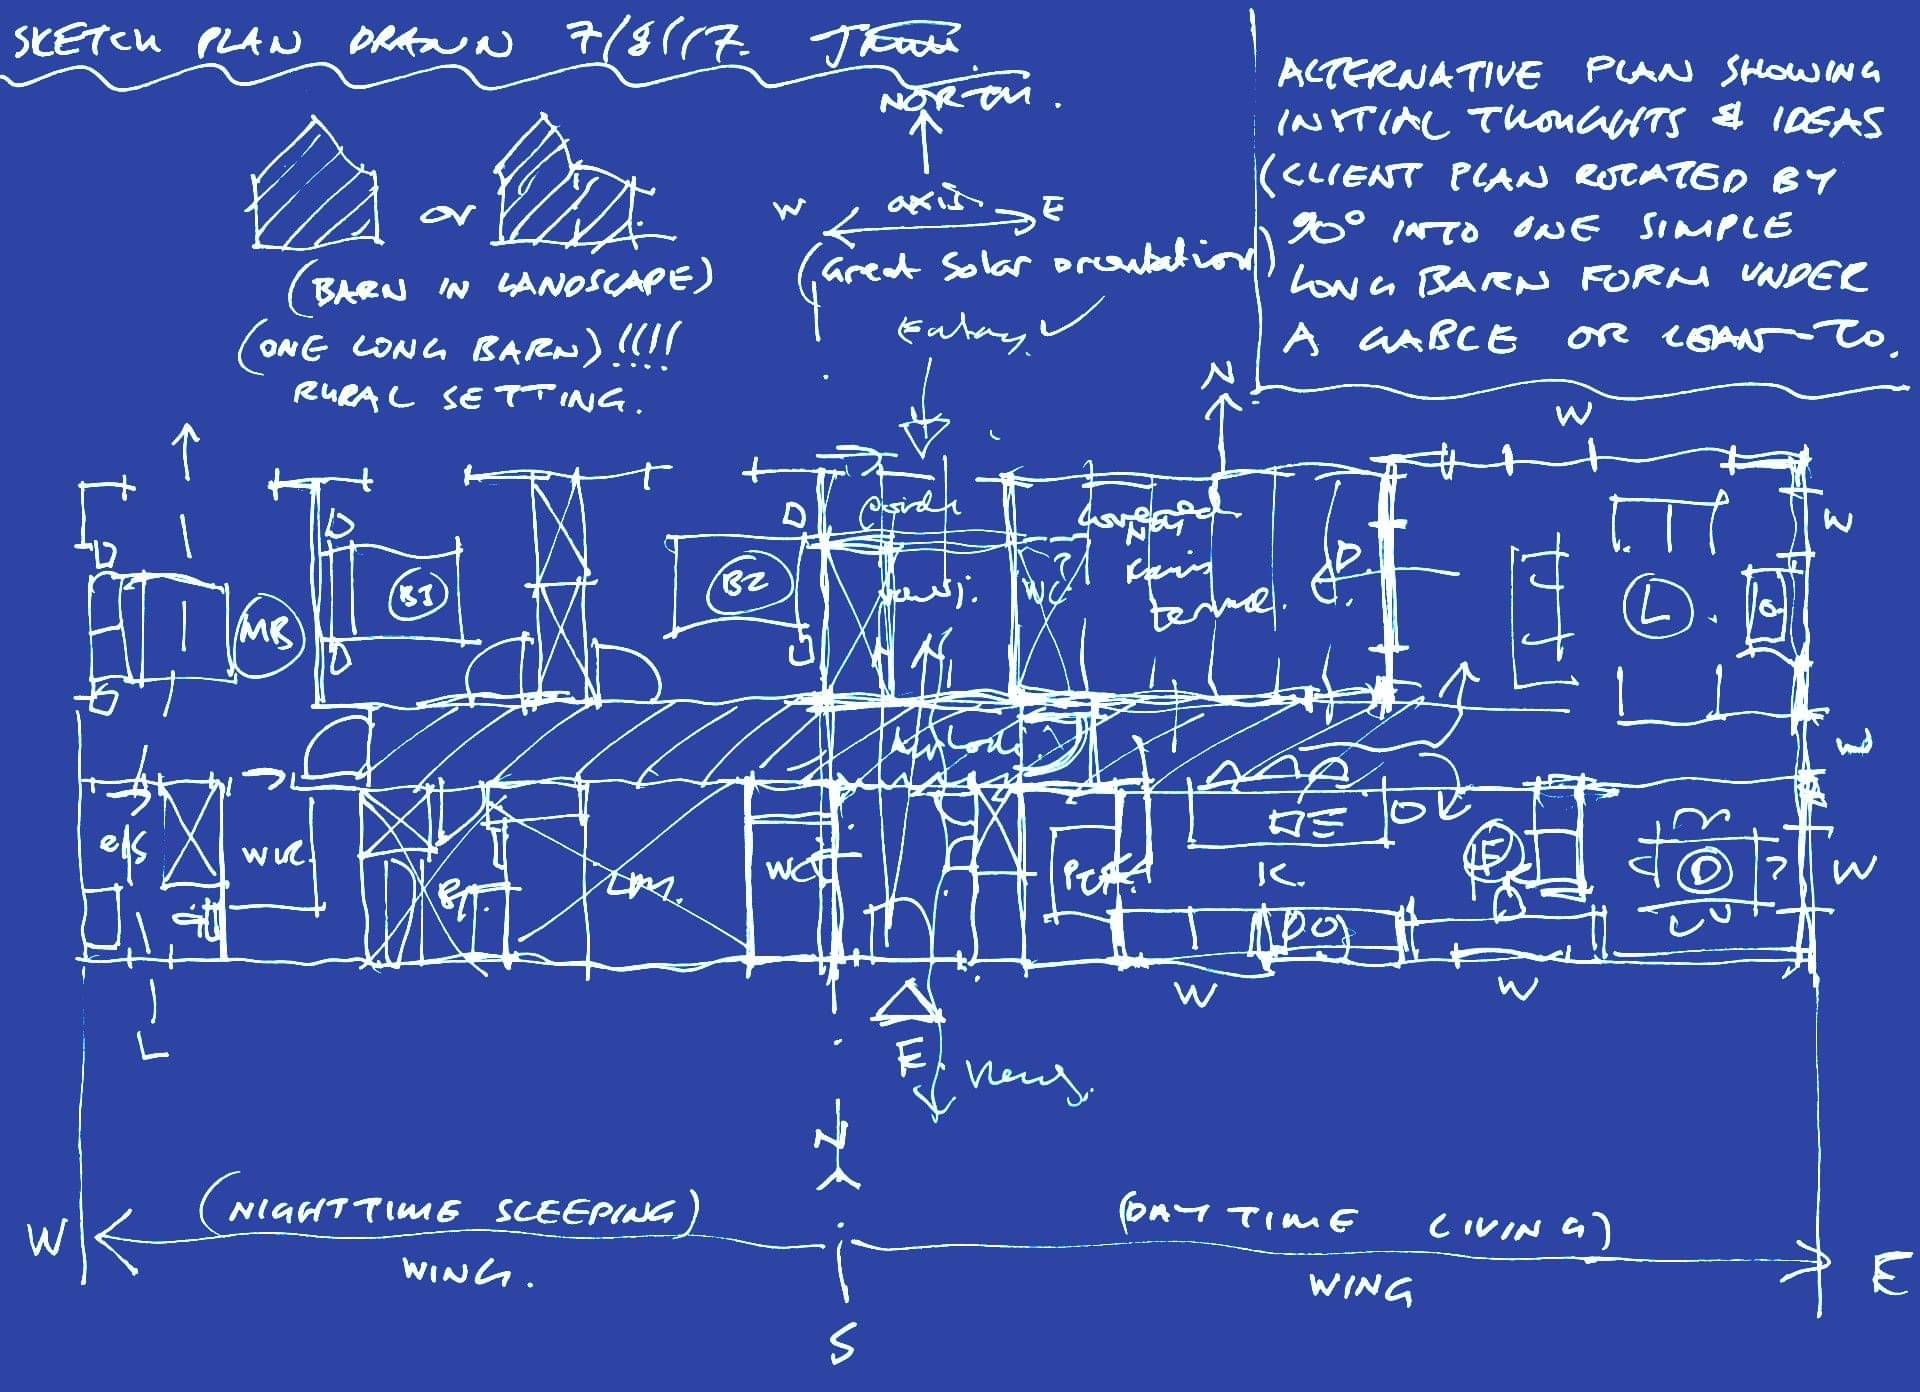 SKETCH PLAN DRAWN 7/8/17.
NORTH.
ALTERNATIVE PLAN SHOWING
INITIAL THOUGHTS & IDEAS
(CLIENT PLAN ROTATED BY
90° INTO ONE SIMPLE
LONG BARN FORM UNDER
A GABLE OR LEAN-TO.
or
W axis E
(Great Solar orientation)
(BARN IN LANDSCAPE)
(ONE LONG BARN) !!!!
RURAL SETTING.
Entry
N
W
D
D
porch
covered
W
D
MB
B1
B2
WC?
D.
L
D
D
W
e/s
W.R.
WC
K.
F
D
W
DO
W
W
L
E
Views.
N
(NIGHTTIME SLEEPING)
WING.
(DAYTIME LIVING)
WING
W
E
S